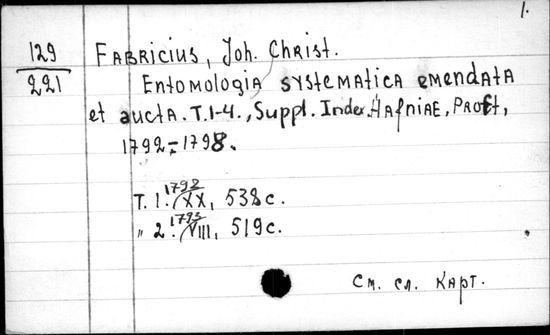 1.
129
221
FABRICIUS, Joh. Christ.
Entomologia systematica emendata
et aucta. T.1-4., Suppl. Index. Hafniae, Proft,
1792-1798.
T. 1. 1792 /XX, 538 с.
" 2. 1793 /VIII, 519 с.
См. сл. карт.